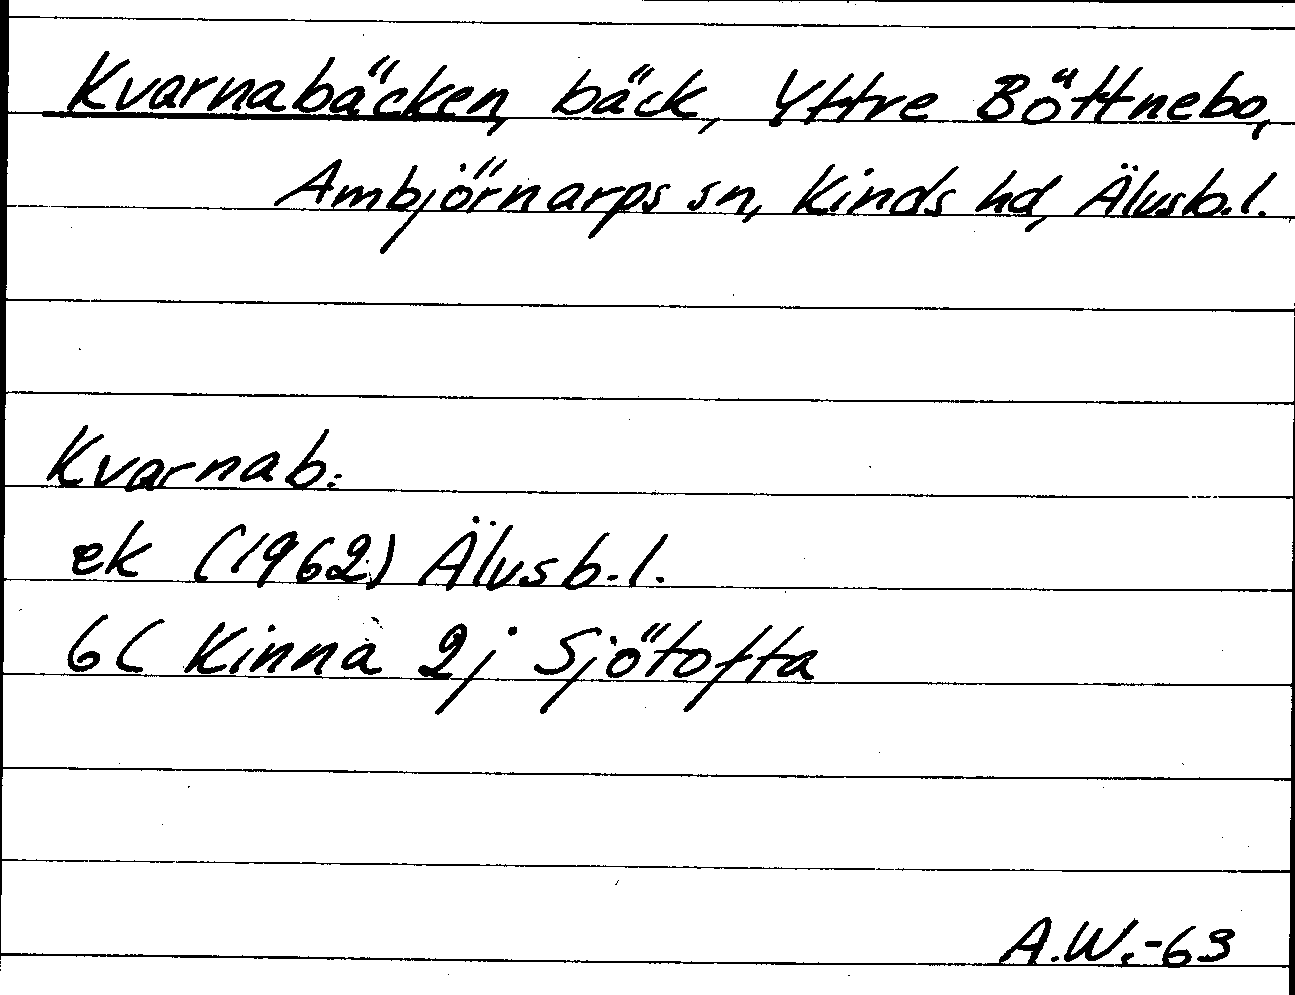 Kvarnabäcken, bäck, Yttre Böttnebo,
Ambjörnarps sn, Kinds hd, Älvsb.l.
Kvarnab.:
ek (1962) Älvsb.l.
6C Kinna 2j Sjötofta
A.W.-63